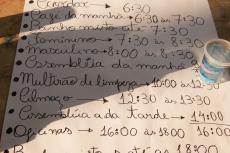 Acordar → 6:30
Café da manhã → 6:30 às 7:30
Banho misto até → 7:30
Feminino → 7:30 às 8:30
Masculino → 8:00 às 8:30
Assembléia da manhã
Mutirão de limpeza → 10:00 às 12:30
Almoço → 12:30 às 13:30
Assembléia da tarde → 14:00
Oficinas → 16:00 às 18:00 16:00
às 18:00